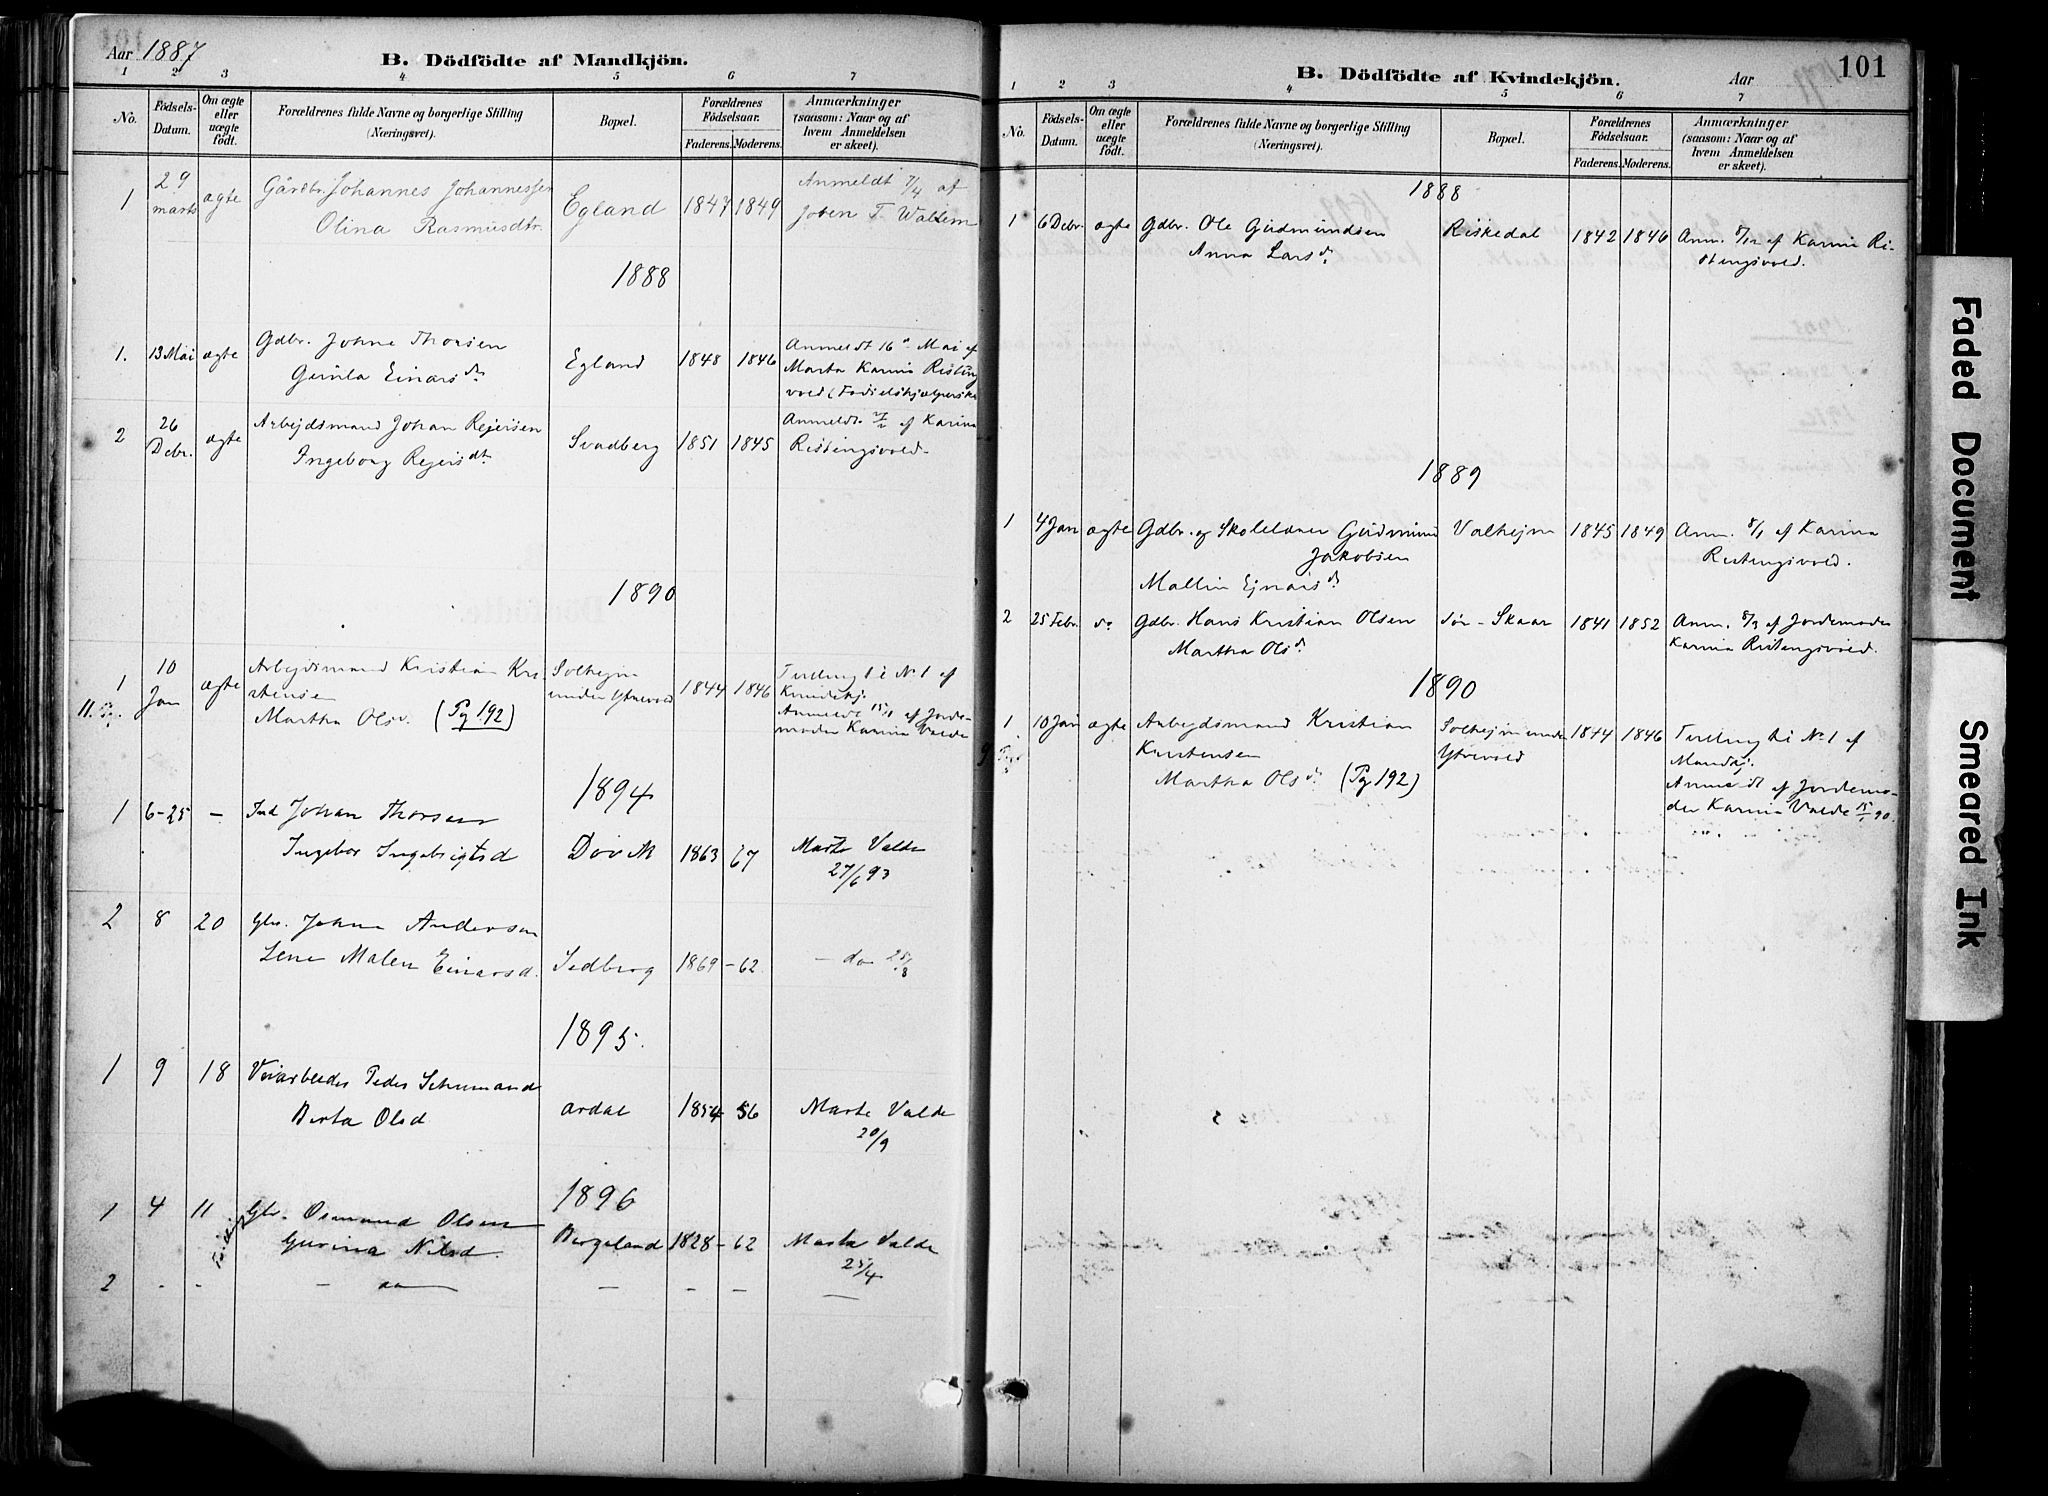 Aar 1887
B. Dödfödte af Mandkjön.
1 2 3 4 5 6 7
No.
Födsels-Datum.
Om ægte eller uægte födt.
Forældrenes fulde Navne og borgerlige Stilling (Næringsvei).
Bopæl.
Forældrenes Födselsaar.
Faderens. Moderens.
Anmærkninger (saasom: Naar og af hvem Anmeldelsen er skeet).
1 29 marts ægte Gårdbr. Johannes Johannessen Egland 1847 1849 Anmeldt 7/4 af
Olina Rasmusdtr.
1888
1. 13 Mai ægte Gdbr. Johne Thorsen Egland 1848 1846 Anmeldt 16 Mai af
Gunla Einarsdr. Marta Karina Risting
vold
2 26 Debr. ægte Arbejdsmand Johan Rejersen Svadberg 1851 1845 Anmeldt af Karina
Ingeborg Rejersdtr. Ristingsvold.
1890
1 10 Jan ægte Arbejdsmand Kristian Kri- Solhejm 1844 1846 Tvilling til No 1 af
stensen under Ytrevold Kvindekj.
Martha Olsd. (Pg 192) Anmeldt 15/1 af Jorde-
moder Karina Valde
1894
1 6-25 - Ind Johan Thorsen
Ingebor Ingebrigtsd 1863 67 Marte Valde
27/6 93
2 8 20 Gbr. Johne Andersen
Lene Malen Einarsd. Sedberg 1869 - 62 - do 25/8
1895.
1 9 18 Veiarbeider Peder
Berta Olsd ardal 1854 56 Marte Valde
20/9
1896
1 4 11 Gbr. Osmund Olsen
Gurina Nilsd. Bergeland 1828 - 62 Marta Valde
25/4
2 - - - - - -
101
B. Dödfödte af Kvindekjön.
Aar
1 2 3 4 5 6 7
No.
Födsels-Datum.
Om ægte eller uægte födt.
Forældrenes fulde Navne og borgerlige Stilling (Næringsvei).
Bopæl.
Forældrenes Födselsaar.
Faderens. Moderens.
Anmærkninger (saasom: Naar og af hvem Anmeldelsen er skeet).
1888
1 6 Debr. ægte Gdbr. Ole Gudmundsen Riskedal 1842 1846 Anm. 8/12 af Karina Ri-
Anna Larsdr. stingsvold.
1889
1 4 Jan ægte Gdbr. og Skolelærer Gudmund Valhejm 1845 1849 Anm. 8/1 af Karina
Jakobsen Ristingsvold.
Mallin Ejnarsdr.
2 25 Febr. do Gdbr. Hans Kristian Olsen Sør-Skaar 1841 1852 Anm. 8/3 af Jordemoder
Martha Olsdr. Karina Ristingsvold.
1890
1 10 Jan ægte Arbejdsmand Kristian Solhejm under 1844 1846 Tvilling til No 1 af
Kristensen Ytrevold Mandkj.
Martha Olsdr. (Pg 192) Anmeldt af Jordemo-
der Karina Valde 15/1 90.
Faded Document
Smeared Ink